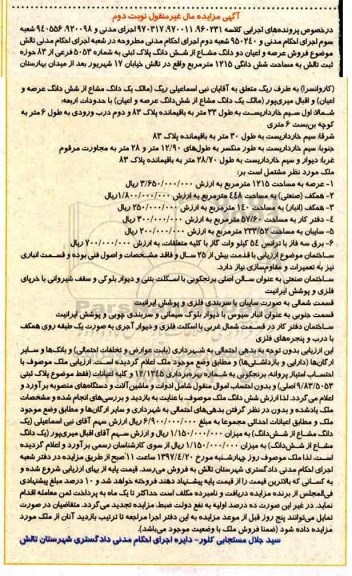 آگهی مزایده مال غیرمنقول نوبت دوم
درخصوص پرونده‌های اجرایی کلاسه ۹۶۰۲۳۱، ۹۷۰۰۱۱، ۹۷۰۳۱۷ اجرای مدنی و ۹۲۰۰۹۸، ۹۴۰۵۵۶ شعبه
سوم اجرای احکام مدنی و ۹۵۰۲۴۰ شعبه دوم اجرای احکام مدنی مطروحه در شعبه اجرای احکام مدنی تالش
موضوع فروش عرصه و اعیان دو دانگ مشاع از شش دانگ پلاک ثبتی به شماره ۵۰۵۳ فرعی از ۸۳ حوزه
ثبت تالش به مساحت شش دانگی ۱۲۱۵ مترمربع واقع در تالش خیابان ۱۷ شهریور بعد از میدان بیمارستان
(کاروانسرا) به طرف ریک متعلق به آقایان نبی اسماعیلی ریک (مالک یک دانگ مشاع از شش دانگ عرصه و
اعیان) و اقبال میری‌پور (مالک یک دانگ مشاع از شش‌دانگ عرصه و اعیان) با حدودات اربعه:
شمالا: اول سیم خارداریست به طول ۳۳ متر به باقیمانده پلاک ۸۳ و دوم درب ورودی به طول ۶ متر به
کوچه بن‌بست ۶ متری
شرقا: سیم خارداریست به طول ۳۰ متر به باقیمانده پلاک ۸۳
جنوبا: سیم خارداریست به طور منکسر به طول‌های ۱۲/۹۰ متر و ۲۸ متر به مجاورت مرقوم
غربا: دیوار و سیم خارداریست به طول ۲۸/۷۰ متر به باقیمانده پلاک ۸۳
ملک مورد نظر مشتمل است بر:
۱- عرصه به مساحت ۱۲۱۵ مترمربع به ارزش ۳/۶۵۰/۰۰۰/۰۰۰ ریال
۲- همکف (صنعتی) به مساحت ۴۴۸ مترمربع به ارزش ۱/۸۰۰/۰۰۰/۰۰۰ ریال
۳- همکف (انبار) به مساحت ۱۴۰ مترمربع به ارزش ۲۵۰/۰۰۰/۰۰۰ ریال
۴- دفتر کار به مساحت ۵۷/۶۰ مترمربع به ارزش ۳۰۰/۰۰۰/۰۰۰ ریال
۵- سایبان به مساحت ۲۳۳/۵۲ مترمربع به ارزش ۲۰۰/۰۰۰/۰۰۰ ریال
۶- برق سه فاز با ترانس ۵۴ کیلو وات گاز با کلیه متعلقات، به ارزش ۷۰۰/۰۰۰/۰۰۰ ریال
ساختمان موضوع ارزیابی با قدمت بیش از ۲۵ سال و فاقد مشخصات و اصول فنی بوده و قسمت انباری
نیز به تعمیرات و مقاوم‌سازی نیاز دارد.
ساختمان صنعتی به عنوان سالن اصلی برنجکوبی با اسکلت بتنی و دیوار بلوکی و سقف شیروانی با خرپای
فلزی و پوشش ایرانیت
قسمت شمالی به صورت سایبان با سربندی فلزی و پوشش ایرانیت
قسمت جنوبی به عنوان انبار سبوس با دیوار بلوک سیمانی و سربندی چوبی و پوشش ایرانیت
ساختمان دفتر کار در قسمت شمال غربی با اسکلت فلزی و دیوار آجری به صورت یک طبقه روی همکف
با درب و پنجره‌های فلزی
این ارزیابی بدون توجه به بدهی احتمالی به شهرداری (بابت عوارض و تخلفات احتمالی) و بانک‌ها و سایر
ارگان‌ها (دارایی و بازداشتی‌ها) و مطابق وضع موجود ملک اعلام گردیده است. ارزیابی ملک موصوف با
احتساب امتیاز پروانه برنجکوبی به شماره بهره‌برداری ۱۲/۱۳۴۵ و کلیه اعیانات (فقط موضوع پلاک ثبتی
۹/۸۳/۵۰۵۳ اصلی) و بدون احتساب اموال منقول شامل ادوات و ماشین‌آلات و دستگاه‌های منصوبه برآورد و
اعلام می‌گردد. لذا ارزش شش دانگ ملک موصوف، با عنایت به بازدید و بررسی‌های انجام شده و مشخصات
ملک یادشده و بدون در نظر گرفتن بدهی‌های احتمالی به شهرداری و سایر ارگان‌ها و مطابق وضع موجود
ملک و مطابق اعیانات احداثی مجموعا به مبلغ ۶/۹۰۰/۰۰۰/۰۰۰ ریال ارزش سهم آقای نبی اسماعیلی (یک
دانگ مشاع از شش‌دانگ) به میزان ۱/۱۵۰/۰۰۰/۰۰۰ ریال و ارزش سهم آقای اقبال میری‌پور (یک دانگ
مشاع از شش‌دانگ) به میزان ۱/۱۵۰/۰۰۰/۰۰۰ ریال از سوی کارشناسان رسمی برآورد و اعلام گردیده
است. لذا ملک موصوف روز چهارشنبه مورخ ۱۳۹۷/۴/۲۰ ساعت ۱۱ صبح از طریق مزایده در دفتر شعبه
اجرای احکام مدنی دادگستری شهرستان تالش به فروش می‌رسد. قیمت پایه از بهای ارزیابی شروع شده و
به کسانی که بالاترین قیمت را از قیمت پایه پیشنهاد دهند فروخته خواهد شد و ۱۰ درصد مبلغ پیشنهادی
فی‌المجلس از برنده مزایده دریافت و نامبرده مکلف است حداکثر تا یک ماه به پرداخت ثمن معامله اقدام
نماید. در غیر این صورت ده درصد اولیه به نفع دولت ضبط، مزایده تجدید می‌گردد. متقاضیان در صورت
تمایل می‌توانند پنج روز قبل از موعد مزایده به این دفتر اجرا مراجعه تا ترتیب بازدید آنان از ملک مورد
مزایده داده شود (ضمنا فروش ملک با وضعیت موجود می‌باشد).
سید جلال مستجابی کلور- دایره اجرای احکام مدنی دادگستری شهرستان تالش